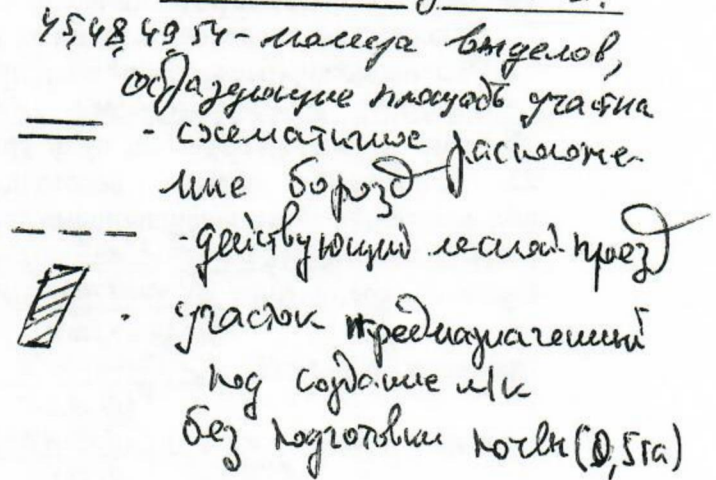 45,48,49,54 - номера выделов,
образующие площадь участка
- схематичное расположе-
ние борозд
- действующий лесной проезд
- участок предназначенный
под создание л/к
без подготовки почвы (0,5га)